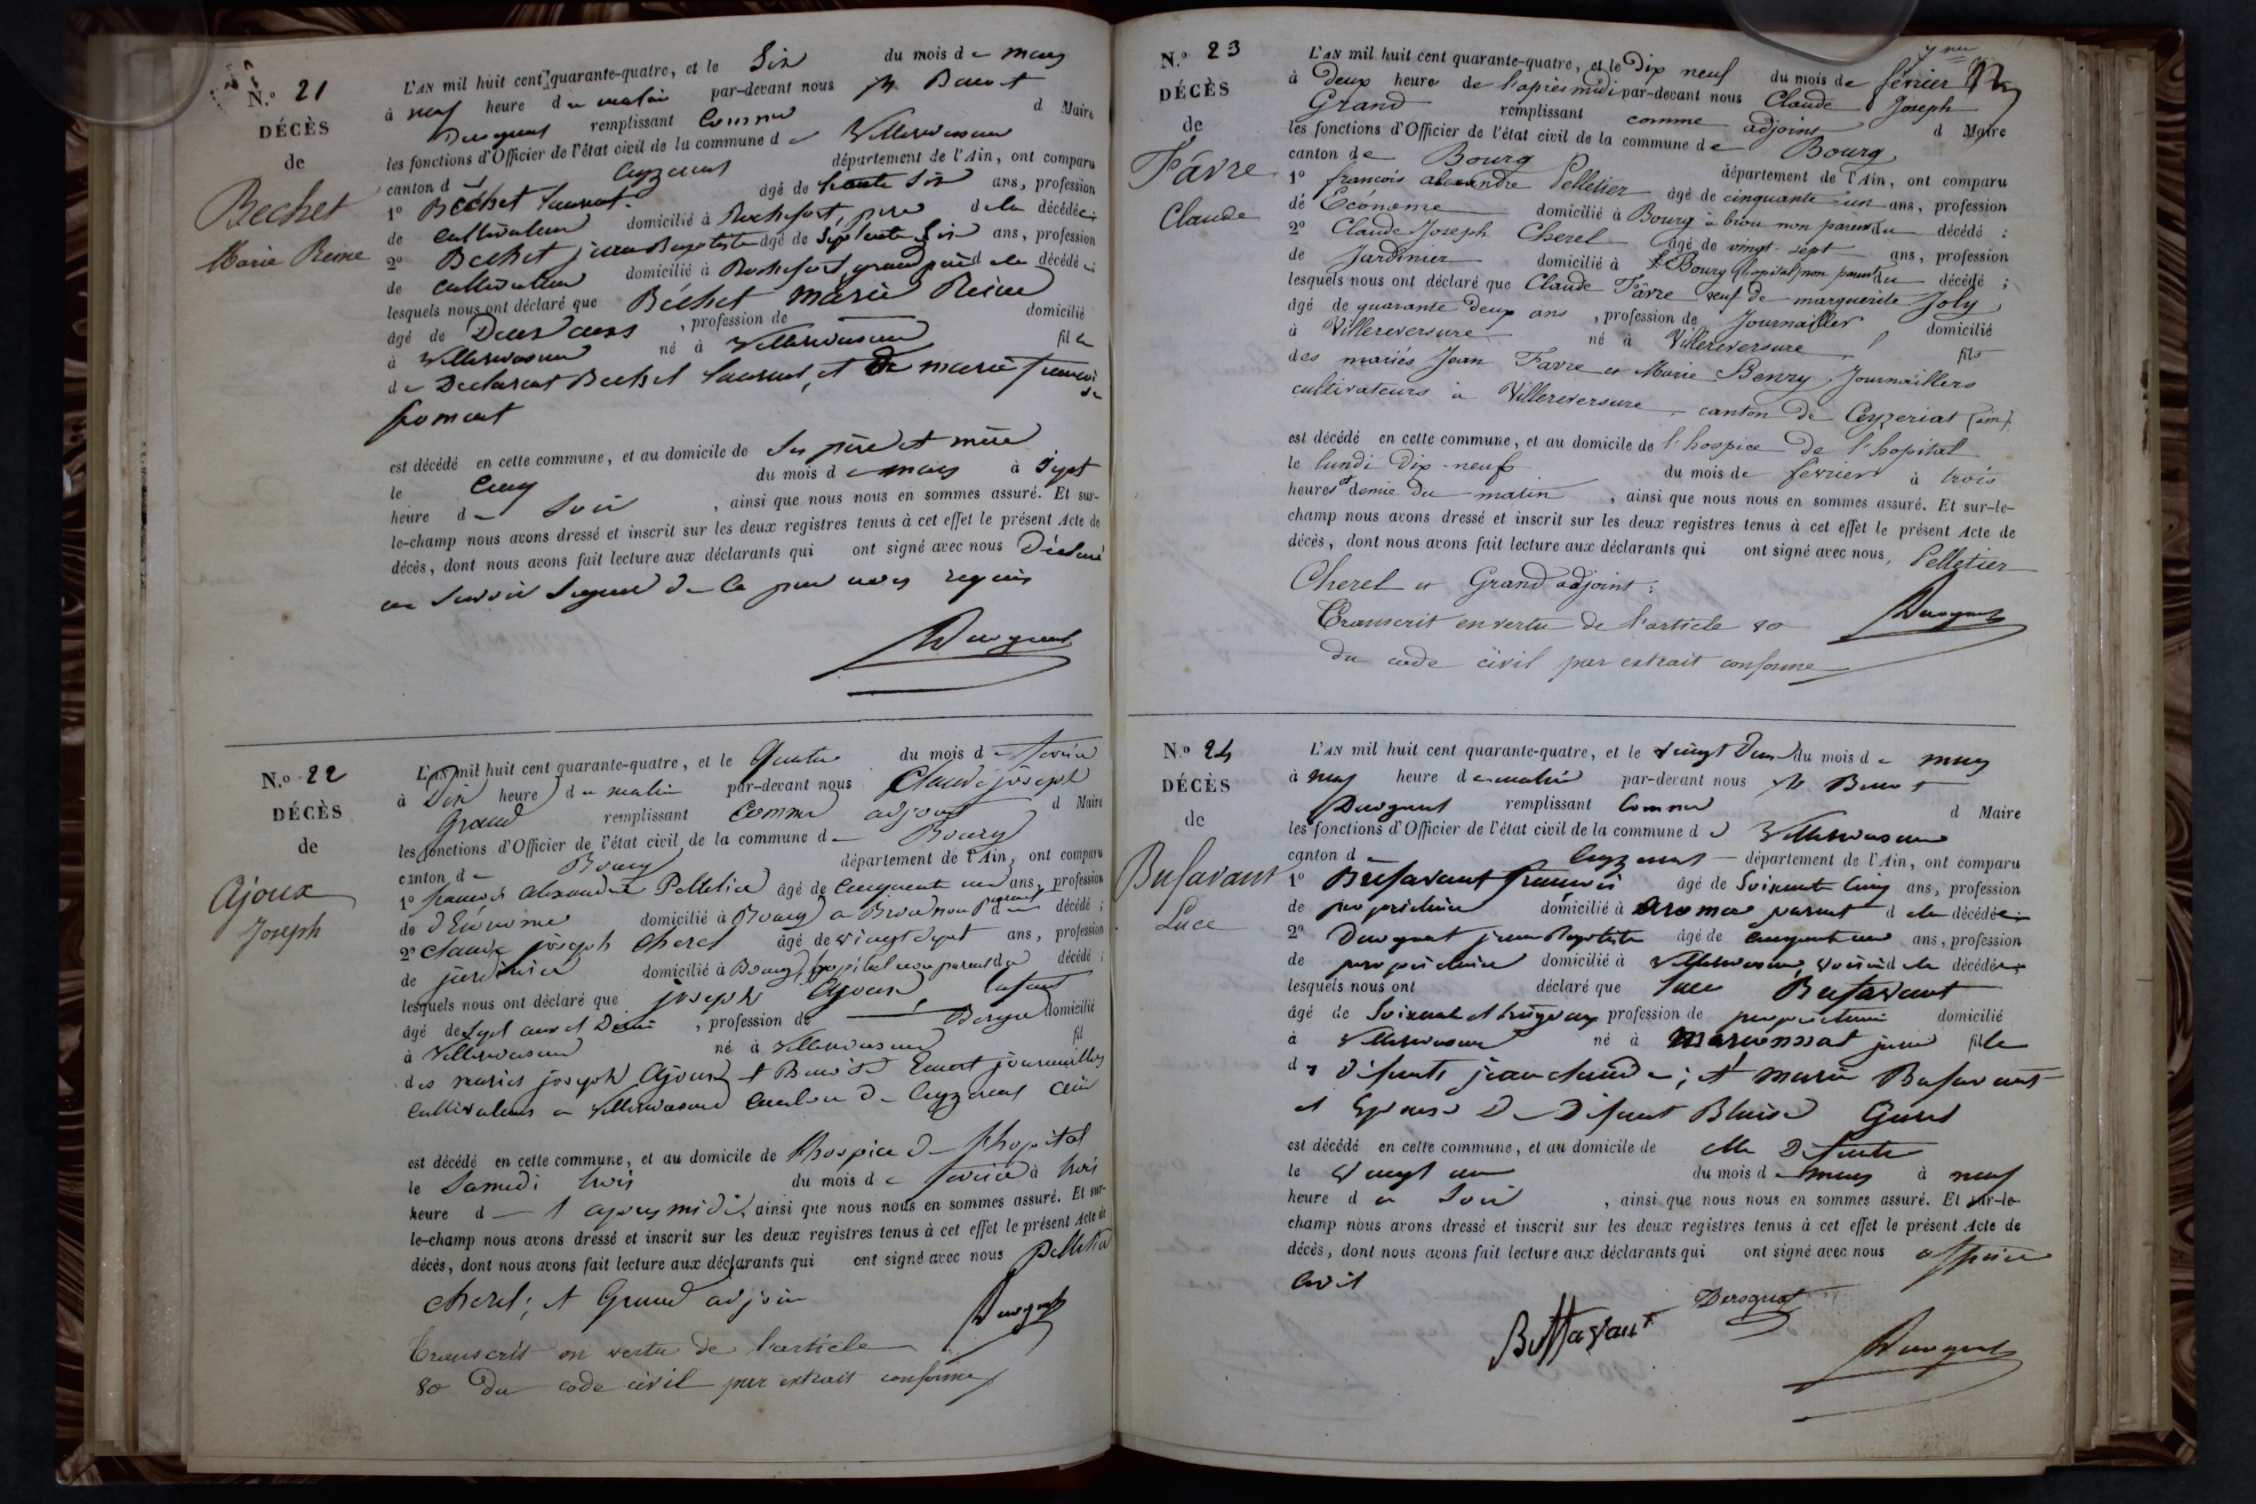 N.º 21
DÉCÈS
de
Bechet
Marie Reine
L'AN mil huit cent quarante-quatre, et le Six du mois de mars
à neuf heure du matin par-devant nous
remplissant comme d Maire
les fonctions d'Officier de l'état civil de la commune de Villereversure
canton d département de l'Ain, ont comparu
1º Bechet Laurent âgé de trente Six ans, profession
de cultivateur domicilié à Rochefort, père de la décédée ;
2º Bechet jean Baptiste âgé de Soixante Six ans, profession
de cultivateur domicilié à Rochefort, grand père de la décédée ;
lesquels nous ont déclaré que Béchet marie Reine
âgé de Deux ans , profession de domicilié
à Villereversure né à Villereversure fille
de Declarant Bechet Laurent, et de marie françoise
fromont
est décédé en cette commune, et au domicile de Ses père et mère
le Cinq du mois de mars à Sept
heure du Soir , ainsi que nous nous en sommes assuré. Et sur-
le-champ nous avons dressé et inscrit sur les deux registres tenus à cet effet le présent Acte de
décès, dont nous avons fait lecture aux déclarants qui ont signé avec nous Déclaré
ne Savoir Signer de ce par nous requis
N.º 22
DÉCÈS
de
Ajoux
Joseph
L'AN mil huit cent quarante-quatre, et le Quatre du mois de février
à Dix heure du matin par-devant nous Claude joseph
Grand remplissant Comme adjoint d Maire
les fonctions d'Officier de l'état civil de la commune de Bourg
canton de Bourg département de l'Ain, ont comparu
1º francois alexandre Pelletier âgé de cinquante un ans, profession
de d'Économe domicilié à Bourg a Brou non parent du décédé ;
2º Claude joseph Cherel âgé de vingt Sept ans, profession
de jardinier domicilié à Bourg, hopital non parent du décédé ;
lesquels nous ont déclaré que joseph Ajoux Enfant
âgé de Sept ans et Demi , profession de Berger domicilié
à Villereversure né à Villereversure fil
des mariés joseph Ajoux et Benoite journaillers
Cultivateurs a Villereversure Canton de Ceyzeriat Ain
est décédé en cette commune, et au domicile de l'hospice de l'hopital
le Samedi trois du mois de février à trois
heure d l'apres midi, ainsi que nous nous en sommes assuré. Et sur-
le-champ nous avons dressé et inscrit sur les deux registres tenus à cet effet le présent Acte de
décès, dont nous avons fait lecture aux déclarants qui ont signé avec nous Pelletier
Cherel ; et Grand adjoin
Transcrit en vertu de l'article
80 du code civil par extrait conforme
N.º 23
DÉCÈS
de
Fâvre
Claude
L'AN mil huit cent quarante-quatre, et le Dix neuf du mois de février
à deux heure de l'après midi par-devant nous Claude Joseph
Grand remplissant comme adjoint d Maire
les fonctions d'Officier de l'état civil de la commune de Bourg
canton de Bourg département de l'Ain, ont comparu
1º francois alexandre Pelletier âgé de cinquante-un ans, profession
de Économe domicilié à Bourg à brou non parent du décédé ;
2º Claude Joseph Cherel âgé de vingt-sept ans, profession
de Jardinier domicilié à Bourg (hopital) non parent du décédé ;
lesquels nous ont déclaré que Claude Fâvre veuf de marguerite Joly
âgé de quarante deux ans , profession de Journailler domicilié
à Villereversure né à Villereversure fils
des mariés Jean Favre et Marie Benry, Journaillers
cultivateurs à Villereversure, canton de Ceyzeriat (ain)
est décédé en cette commune, et au domicile de l'hospice de l'hopital
le lundi Dix-neuf du mois de février à trois
heures et demie du matin , ainsi que nous nous en sommes assuré. Et sur-le-
champ nous avons dressé et inscrit sur les deux registres tenus à cet effet le présent Acte de
décès, dont nous avons fait lecture aux déclarants qui ont signé avec nous, Pelletier
Cherel et Grand adjoint :
Transcrit en vertu de l'article 80
du code civil par extrait conforme
N.º 24
DÉCÈS
de
Bufavant
Luce
L'AN mil huit cent quarante-quatre, et le vingt Deux du mois de mars
à neuf heure du matin par-devant nous
remplissant Comme d Maire
les fonctions d'Officier de l'état civil de la commune d Villereversure
canton d département de l'Ain, ont comparu
1º Bufavant francois âgé de Soixante Cinq ans, profession
de propriétaire domicilié à aromas parent de la décédée ;
2º Durognat jean Baptiste âgé de cinquante un ans, profession
de propriétaire domicilié à Villereversure, voisin de la décédée ;
lesquels nous ont déclaré que Luce Bufavant
âgé de profession de propriétaire domicilié
à Villereversure né à fille
des défunts jean claude ; et marie Bufavant
et Epouse de Défunt Blaise
est décédé en cette commune, et au domicile de elle Défunte
le Vingt un du mois de mars à neuf
heure du Soir , ainsi que nous nous en sommes assuré. Et sur-le-
champ nous avons dressé et inscrit sur les deux registres tenus à cet effet le présent Acte de
décès, dont nous avons fait lecture aux déclarants qui ont signé avec nous officier
Civil
Buffavant
Derognat